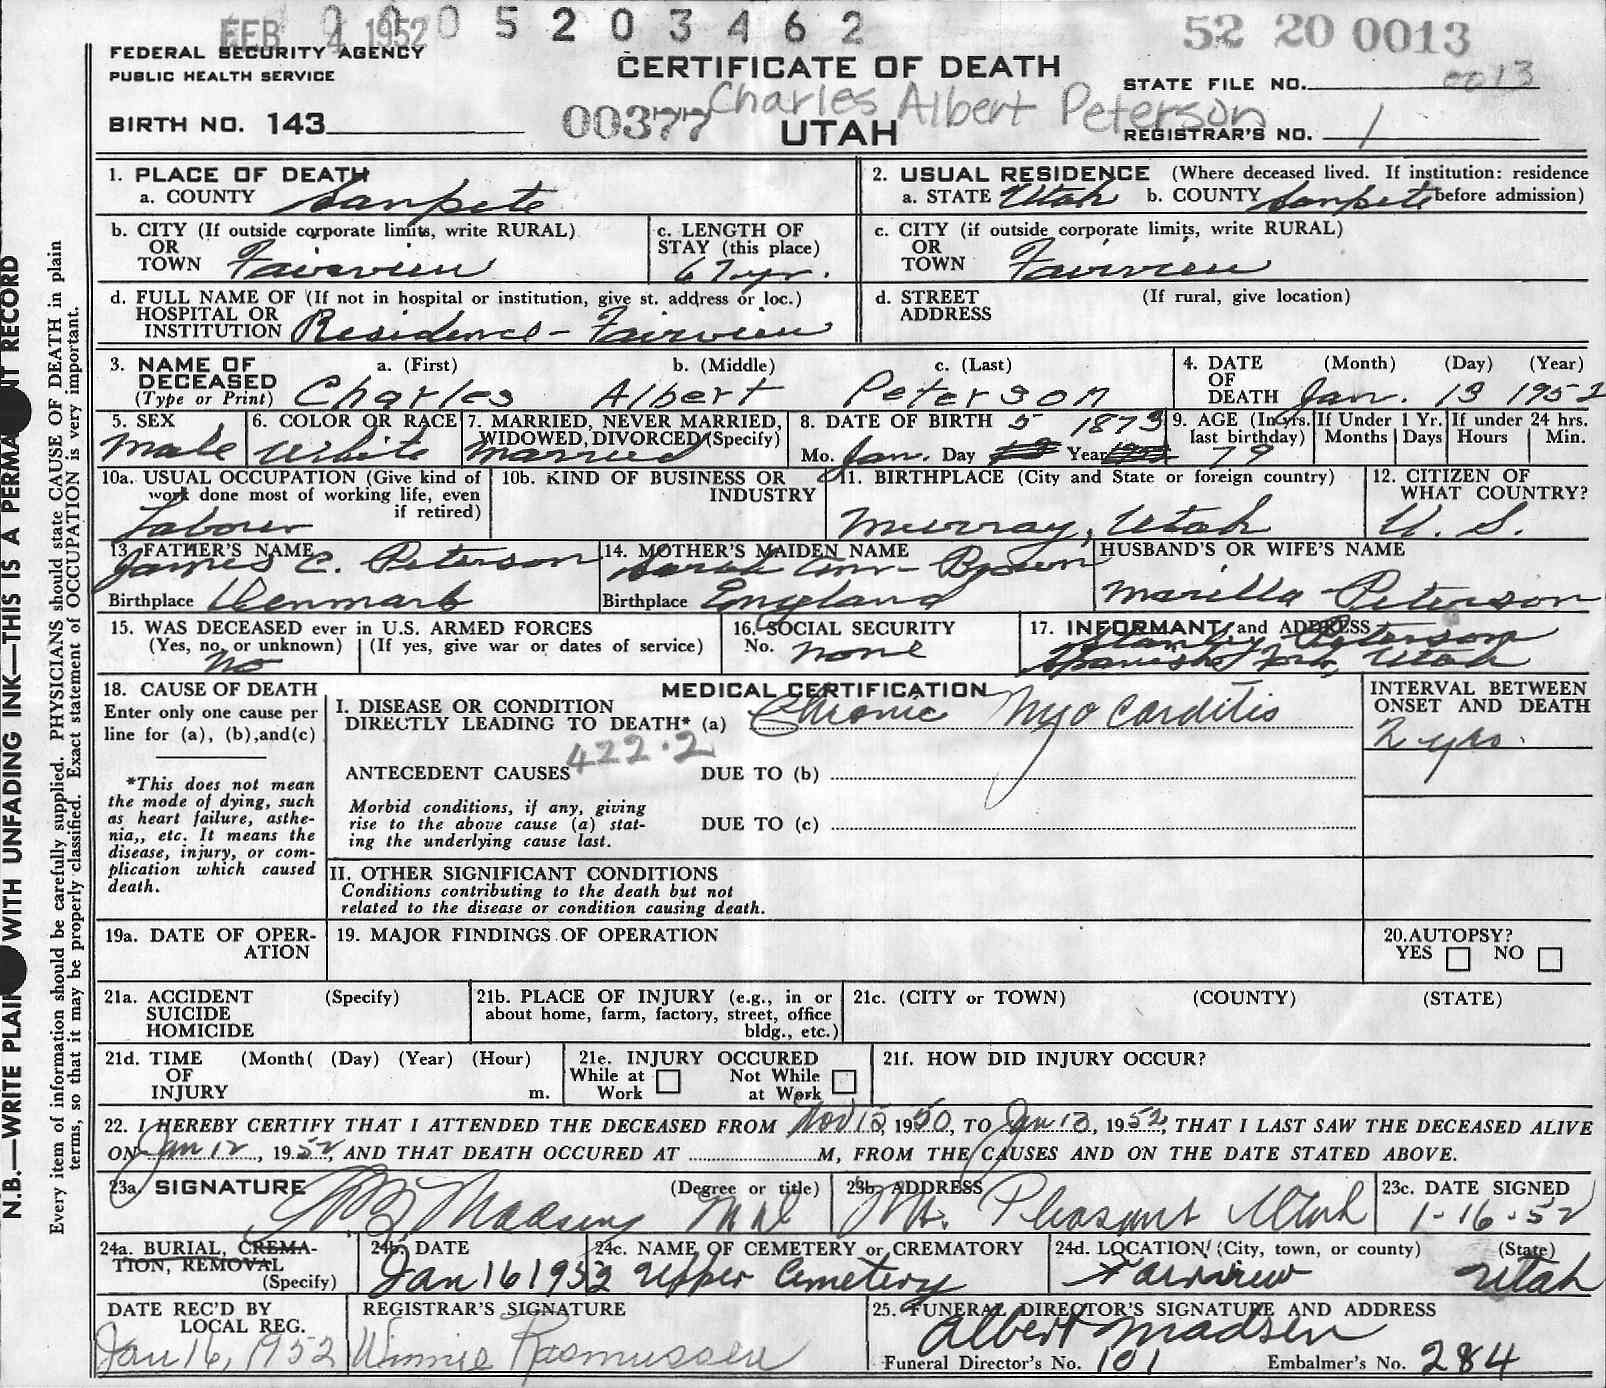 FEB 4 1952 0005203462 52 20 0013
FEDERAL SECURITY AGENCY
PUBLIC HEALTH SERVICE
CERTIFICATE OF DEATH
STATE FILE NO. 0013
BIRTH NO. 143
00377 Charles Albert Peterson
UTAH
REGISTRAR'S NO. 1
1. PLACE OF DEATH
a. COUNTY Sanpete
2. USUAL RESIDENCE (Where deceased lived. If institution: residence
a. STATE Utah b. COUNTY Sanpete before admission)
b. CITY (If outside corporate limits, write RURAL)
OR
TOWN Fairview
c. LENGTH OF
STAY (this place)
67 yr.
c. CITY (if outside corporate limits, write RURAL)
OR
TOWN Fairview
d. FULL NAME OF (If not in hospital or institution, give st. address or loc.)
HOSPITAL OR
INSTITUTION Residence - Fairview
d. STREET (If rural, give location)
ADDRESS
3. NAME OF a. (First) b. (Middle) c. (Last)
DECEASED
(Type or Print) Charles Albert Peterson
4. DATE (Month) (Day) (Year)
OF
DEATH Jan. 13 1952
5. SEX
Male
6. COLOR OR RACE
White
7. MARRIED, NEVER MARRIED,
WIDOWED, DIVORCED (Specify)
Married
8. DATE OF BIRTH 5 1873
Mo. Jan. Day Year
9. AGE (In yrs.
last birthday)
79
If Under 1 Yr.
Months Days
If under 24 hrs.
Hours Min.
10a. USUAL OCCUPATION (Give kind of
work done most of working life, even
if retired)
Laborer
10b. KIND OF BUSINESS OR
INDUSTRY
11. BIRTHPLACE (City and State or foreign country)
Murray, Utah
12. CITIZEN OF
WHAT COUNTRY?
U. S.
13. FATHER'S NAME
James C. Peterson
Birthplace Denmark
14. MOTHER'S MAIDEN NAME
Sarah Ann Brown
Birthplace England
HUSBAND'S OR WIFE'S NAME
Marilla Peterson
15. WAS DECEASED ever in U.S. ARMED FORCES
(Yes, no, or unknown) (If yes, give war or dates of service)
No
16. SOCIAL SECURITY
No. none
17. INFORMANT and ADDRESS
Stanley Peterson
Spanish Fork, Utah
18. CAUSE OF DEATH
Enter only one cause per
line for (a), (b),and(c)
*This does not mean
the mode of dying, such
as heart failure, asthe-
nia,, etc. It means the
disease, injury, or com-
plication which caused
death.
MEDICAL CERTIFICATION
I. DISEASE OR CONDITION
DIRECTLY LEADING TO DEATH* (a) Chronic Myocarditis
422.2
ANTECEDENT CAUSES DUE TO (b)
Morbid conditions, if any, giving
rise to the above cause (a) stat-
ing the underlying cause last.
DUE TO (c)
INTERVAL BETWEEN
ONSET AND DEATH
2 yrs.
II. OTHER SIGNIFICANT CONDITIONS
Conditions contributing to the death but not
related to the disease or condition causing death.
19a. DATE OF OPER-
ATION
19. MAJOR FINDINGS OF OPERATION
20.AUTOPSY?
YES NO
21a. ACCIDENT (Specify)
SUICIDE
HOMICIDE
21b. PLACE OF INJURY (e.g., in or
about home, farm, factory, street, office
bldg., etc.)
21c. (CITY or TOWN) (COUNTY) (STATE)
21d. TIME (Month( (Day) (Year) (Hour)
OF
INJURY m.
21e. INJURY OCCURED
While at Not While
Work at Work
21f. HOW DID INJURY OCCUR?
22. I HEREBY CERTIFY THAT I ATTENDED THE DECEASED FROM Nov 15, 1950, TO Jan 13, 1952, THAT I LAST SAW THE DECEASED ALIVE
ON Jan 12, 1952, AND THAT DEATH OCCURED AT M, FROM THE CAUSES AND ON THE DATE STATED ABOVE.
23a. SIGNATURE (Degree or title)
Madsen M.D.
23b. ADDRESS
Mt. Pleasant Utah
23c. DATE SIGNED
1-16-52
24a. BURIAL, CREMA-
TION, REMOVAL
(Specify)
24b. DATE
Jan 16 1952
24c. NAME OF CEMETERY or CREMATORY
Upper Cemetery
24d. LOCATION (City, town, or county) (State)
Fairview Utah
DATE REC'D BY
LOCAL REG.
Jan 16, 1952
REGISTRAR'S SIGNATURE
Winnie Rasmussen
25. FUNERAL DIRECTOR'S SIGNATURE AND ADDRESS
Albert Madsen
Funeral Director's No. 101 Embalmer's No. 284
N.B.—WRITE PLAI WITH UNFADING INK—THIS IS A PERMA NT RECORD
Every item of information should be carefully supplied. PHYSICIANS should state CAUSE OF DEATH in plain
terms, so that it may be properly classified. Exact statement of OCCUPATION is very important.